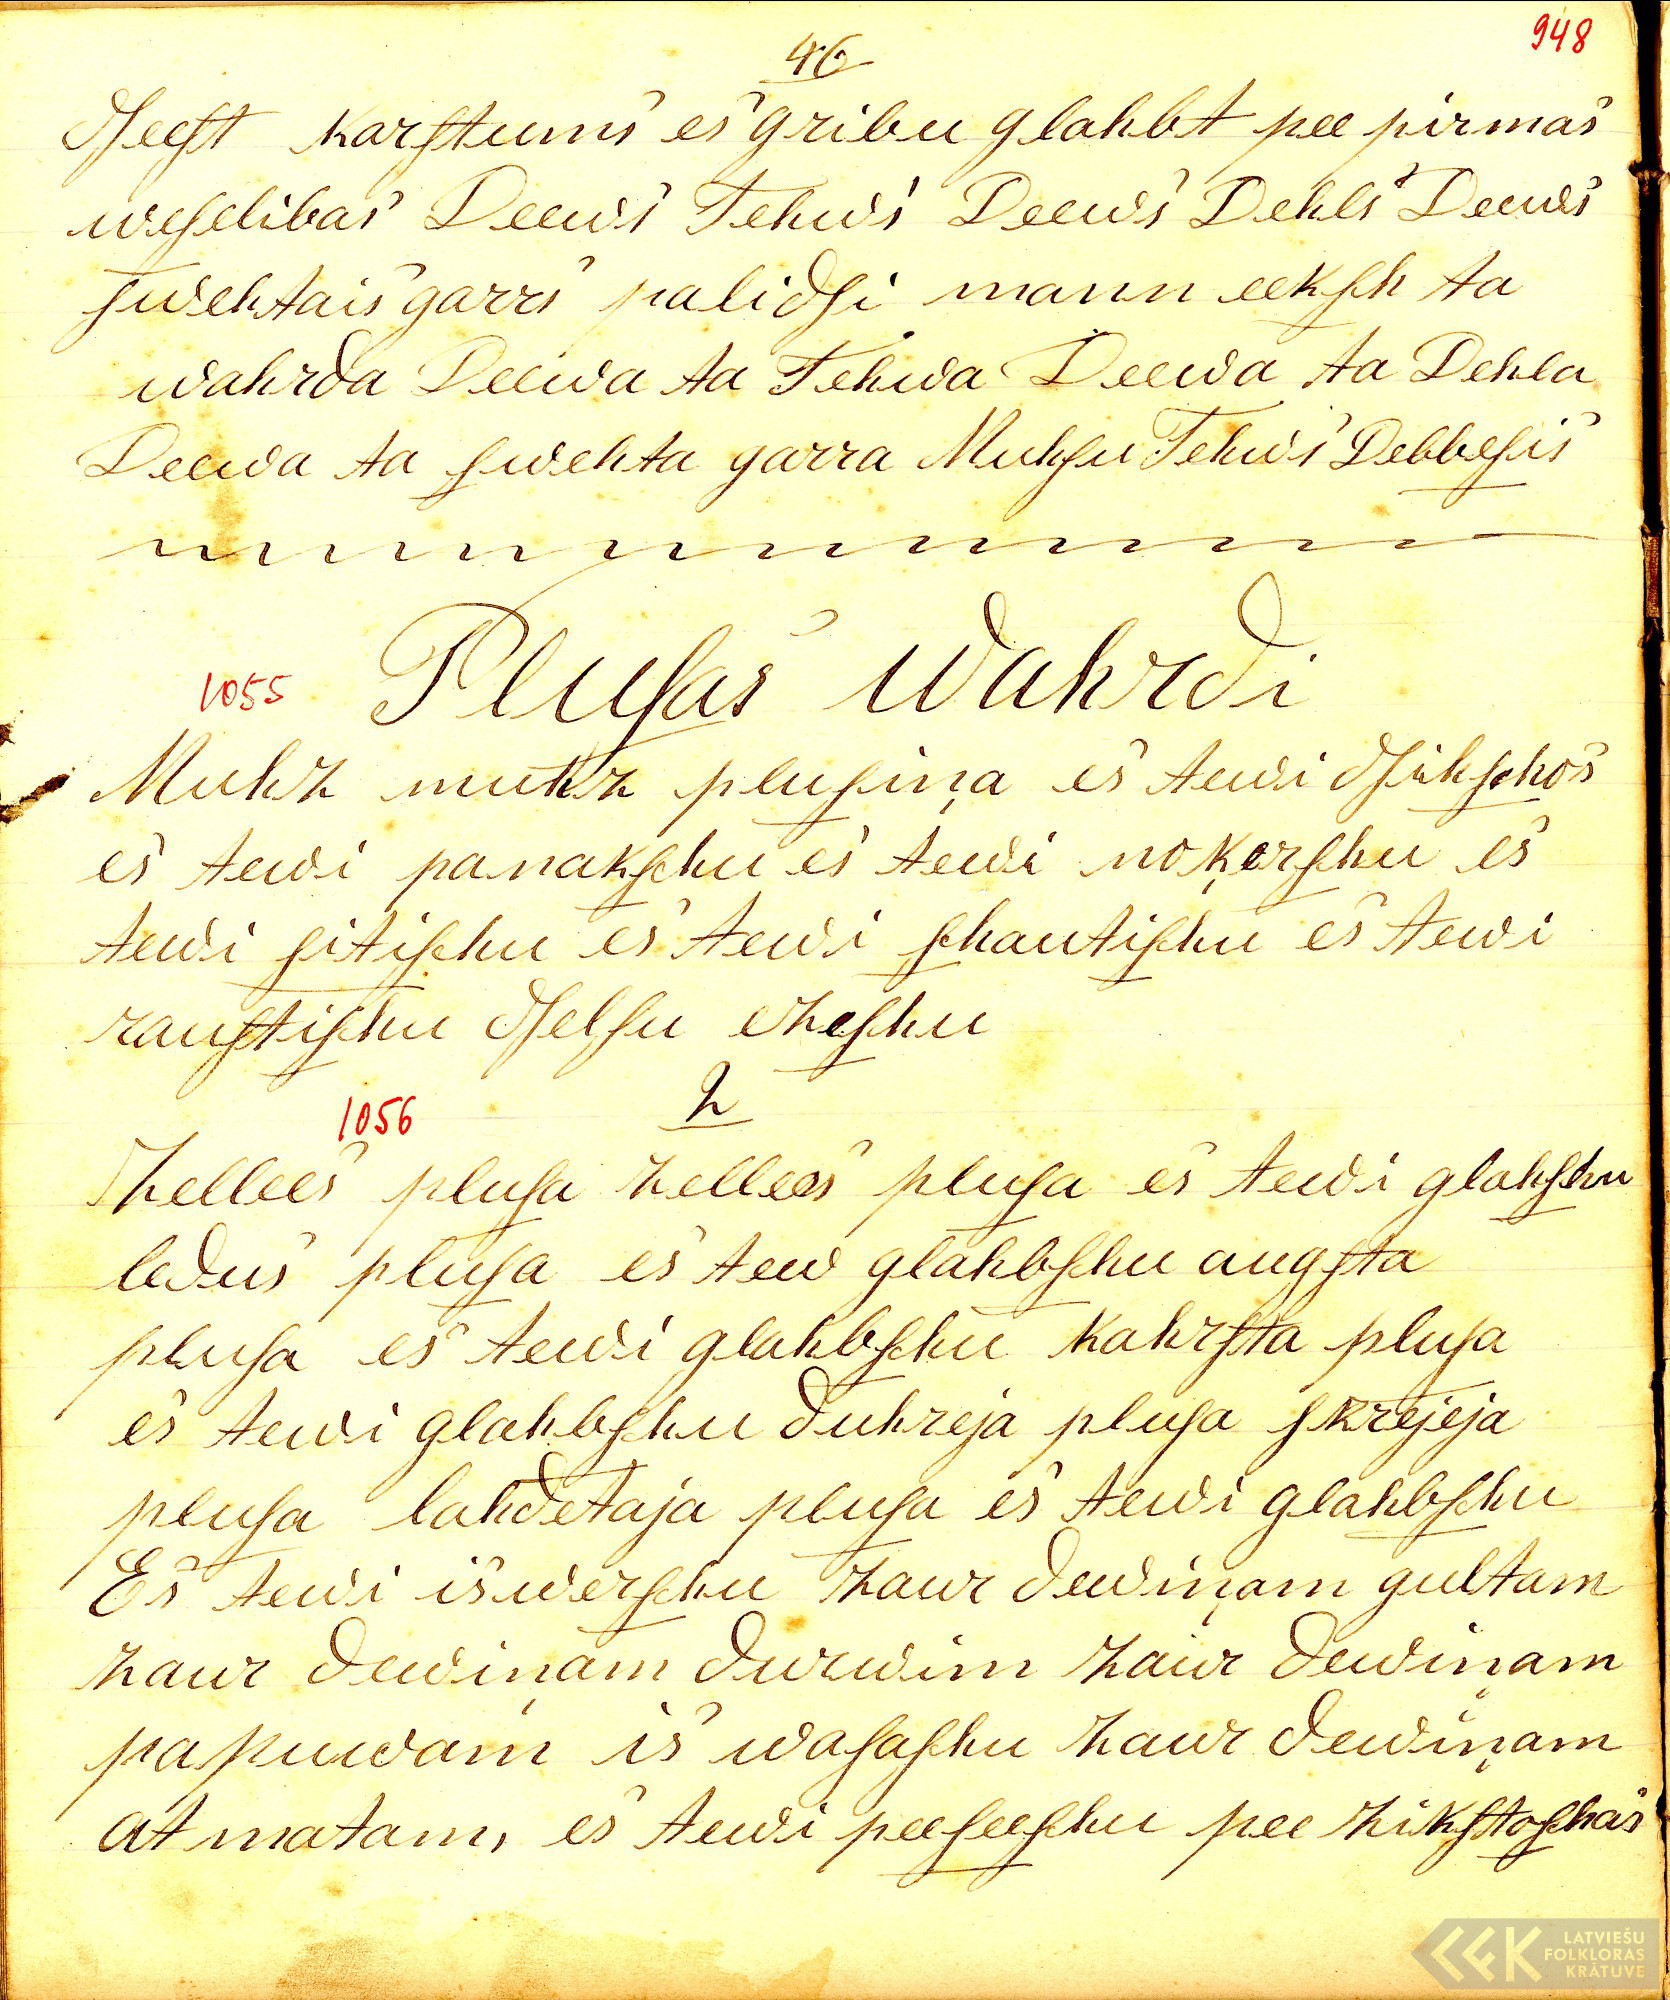 948
46
dſeeſt karſtums es gribu glahbt pee pirmas
weſelibas Deews Tehws Deews Dehls Deews
ſwehtais garrs palidſi mann eekſch ta
wahrda Deewa ta Tehwa Deewa ta Dehla
Deewa ta ſwehta garra Muhſu Tehws Debbeſis
1055 Pluſas Wahrdi
Muhz muhz pluſiņa es tewi dſihſchos
es tewi panakſchu es tewi noķerſchu es
tewi ſitiſchu es tewi ſchautiſchu es tewi
rauſtiſchu dſelſu ezeſchu
1056 2
Zellees pluſa zellees pluſa es tewi glahſchu
ledus pluſa es tew glahbſchu augſta
pluſa es tewi glahbſchu kahrſta pluſa
es tewi glahbſchu duhreja pluſa ſkrejeja
pluſa lahdetaja pluſa es tewi glahbſchu
Es tewi iswerſchu zaur dewiņam gultam
zaur dewiņam durwim zaur dewiņam
papuwam is waſaſchu zaur dewiņam
atmatam, es tewi peeſeeſchu pee zikſtoſchas
LATVIEŠU
FOLKLORAS
KRĀTUVE